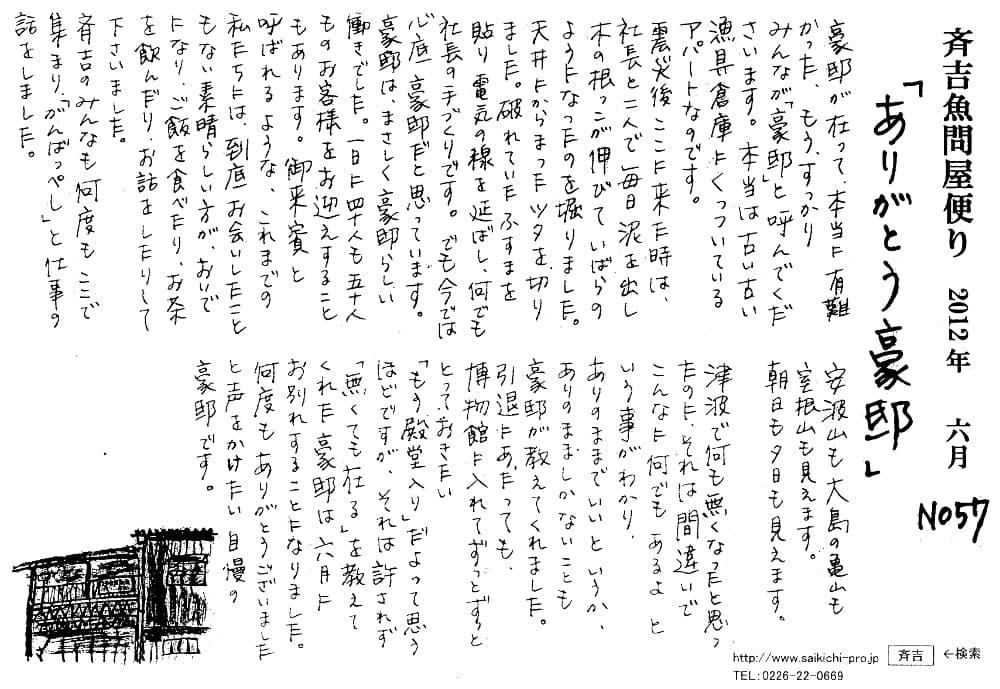 斉吉魚問屋便り 2012年 六月
No57
「ありがとう豪邸」
豪邸が在って、本当に有難
かった、もう、すっかり
みんなが「豪邸」と呼んでくだ
さいます。本当は古い古い
漁具倉庫にくっついている
アパートなのです。
震災後ここに来た時は、
社長と二人で毎日泥を出し
木の根っこが伸びていばらの
ようになったのを堀りました。
天井にからまったツタを切り
ました。破れていたふすまを
貼り電気の線を延ばし、何でも
社長の手づくりです。でも今では
心底豪邸だと思っています。
豪邸は、まさしく豪邸らしい
働きでした。一日に四十人も五十人
ものお客様をお迎えすること
もあります。御来賓と
呼ばれるような、これまでの
私たちには、到底お会いしたこと
もない素晴らしい方が、おいで
になり、ご飯を食べたり、お茶
を飲んだり、お話をしたりして
下さいました。
斉吉のみんなも何度もここで
集まり、「がんばっぺし」と仕事の
話をしました。
安波山も大島の亀山も
室根山も見えます。
朝日も夕日も見えます。
津波で何も無くなったと思っ
たのに、それは間違いで
こんなに何でもあるよと
いう事がわかり、
ありのままでいいというか、
ありのまましかないことも
豪邸が教えてくれました。
引退にあたっても、
博物館に入れてずっとずっと
とっておきたい
「もう殿堂入り」だよって思う
ほどですが、それは許されず
「無くても在る」を教えて
くれた豪邸は六月に
お別れすることになりました。
何度もありがとうございました
と声をかけたい自慢の
豪邸です。
http://www.saikichi-pro.jp 斉吉 ←検索
TEL:0226-22-0669